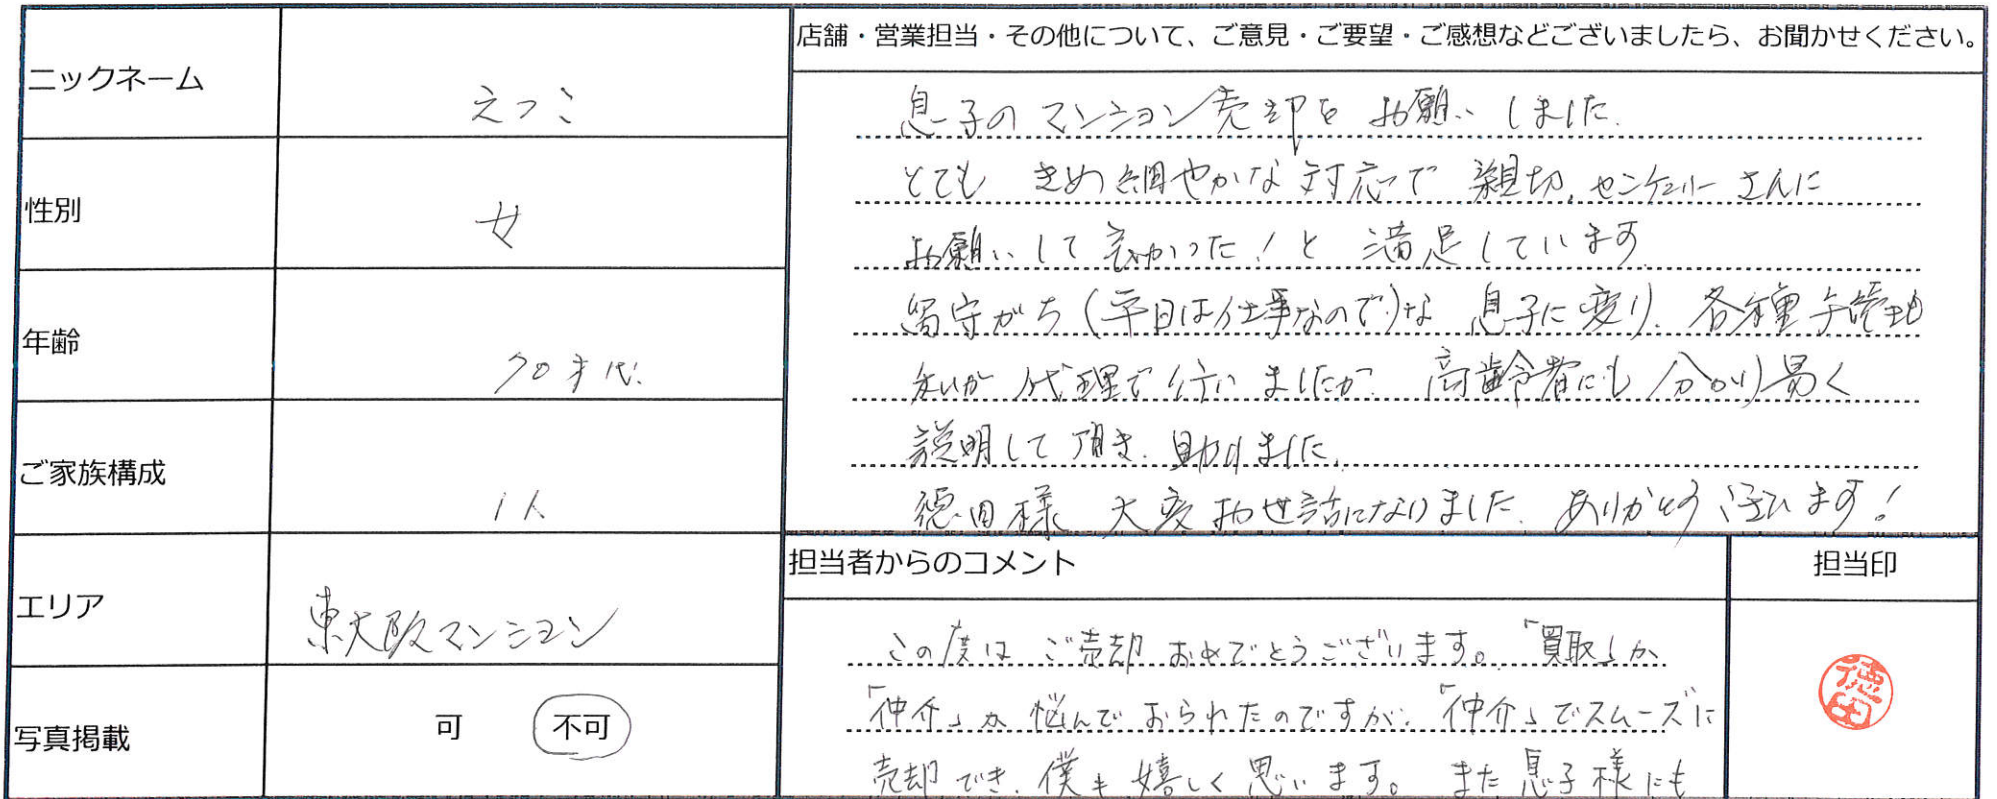 ニックネーム
えつこ
性別
女
年齢
70才代
ご家族構成
1人
エリア
東大阪マンション
写真掲載
可 不可
店舗・営業担当・その他について、ご意見・ご要望・ご感想などございましたら、お聞かせください。
息子のマンション売却をお願いしました.
とても きめ細やかな対応で 親切. センチュリーさんに
お願いして良かった!と 満足しています.
留守がち(平日は仕事なので)な 息子に変り. 各種手続きも
私が代理で行いましたが. 高齢者にも分かり易く
説明して頂き. 助かりました.
徳田様 大変お世話になりました. ありがとう ございます!
担当者からのコメント
この度は ご売却 おめでとうございます。「買取」か
「仲介」か 悩んでおられたのですが、「仲介」でスムーズに
売却でき、僕も嬉しく思います。また息子様にも
担当印
徳田